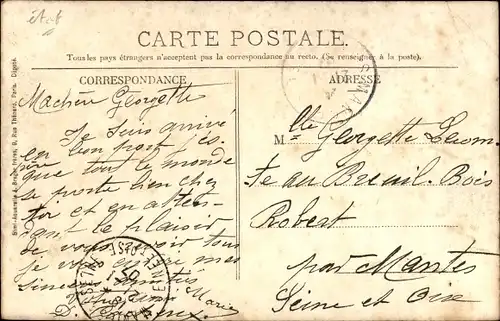 CARTE POSTALE.
Tous les pays étrangers n'acceptent pas la correspondance au recto. (Se renseigner à la poste).
CORRESPONDANCE
ADRESSE
Ma chère Georgette
Je suis arrivé
en bon port j'es-
père que tout le monde
se porte bien chez
toi et en atten-
dant le plaisir
de vous revoir tous
je vous envoie mes
sincères amitiés
Marie
Mlle Georgette
au Breuil. Bois
Robert
par Mantes
Seine et Oise